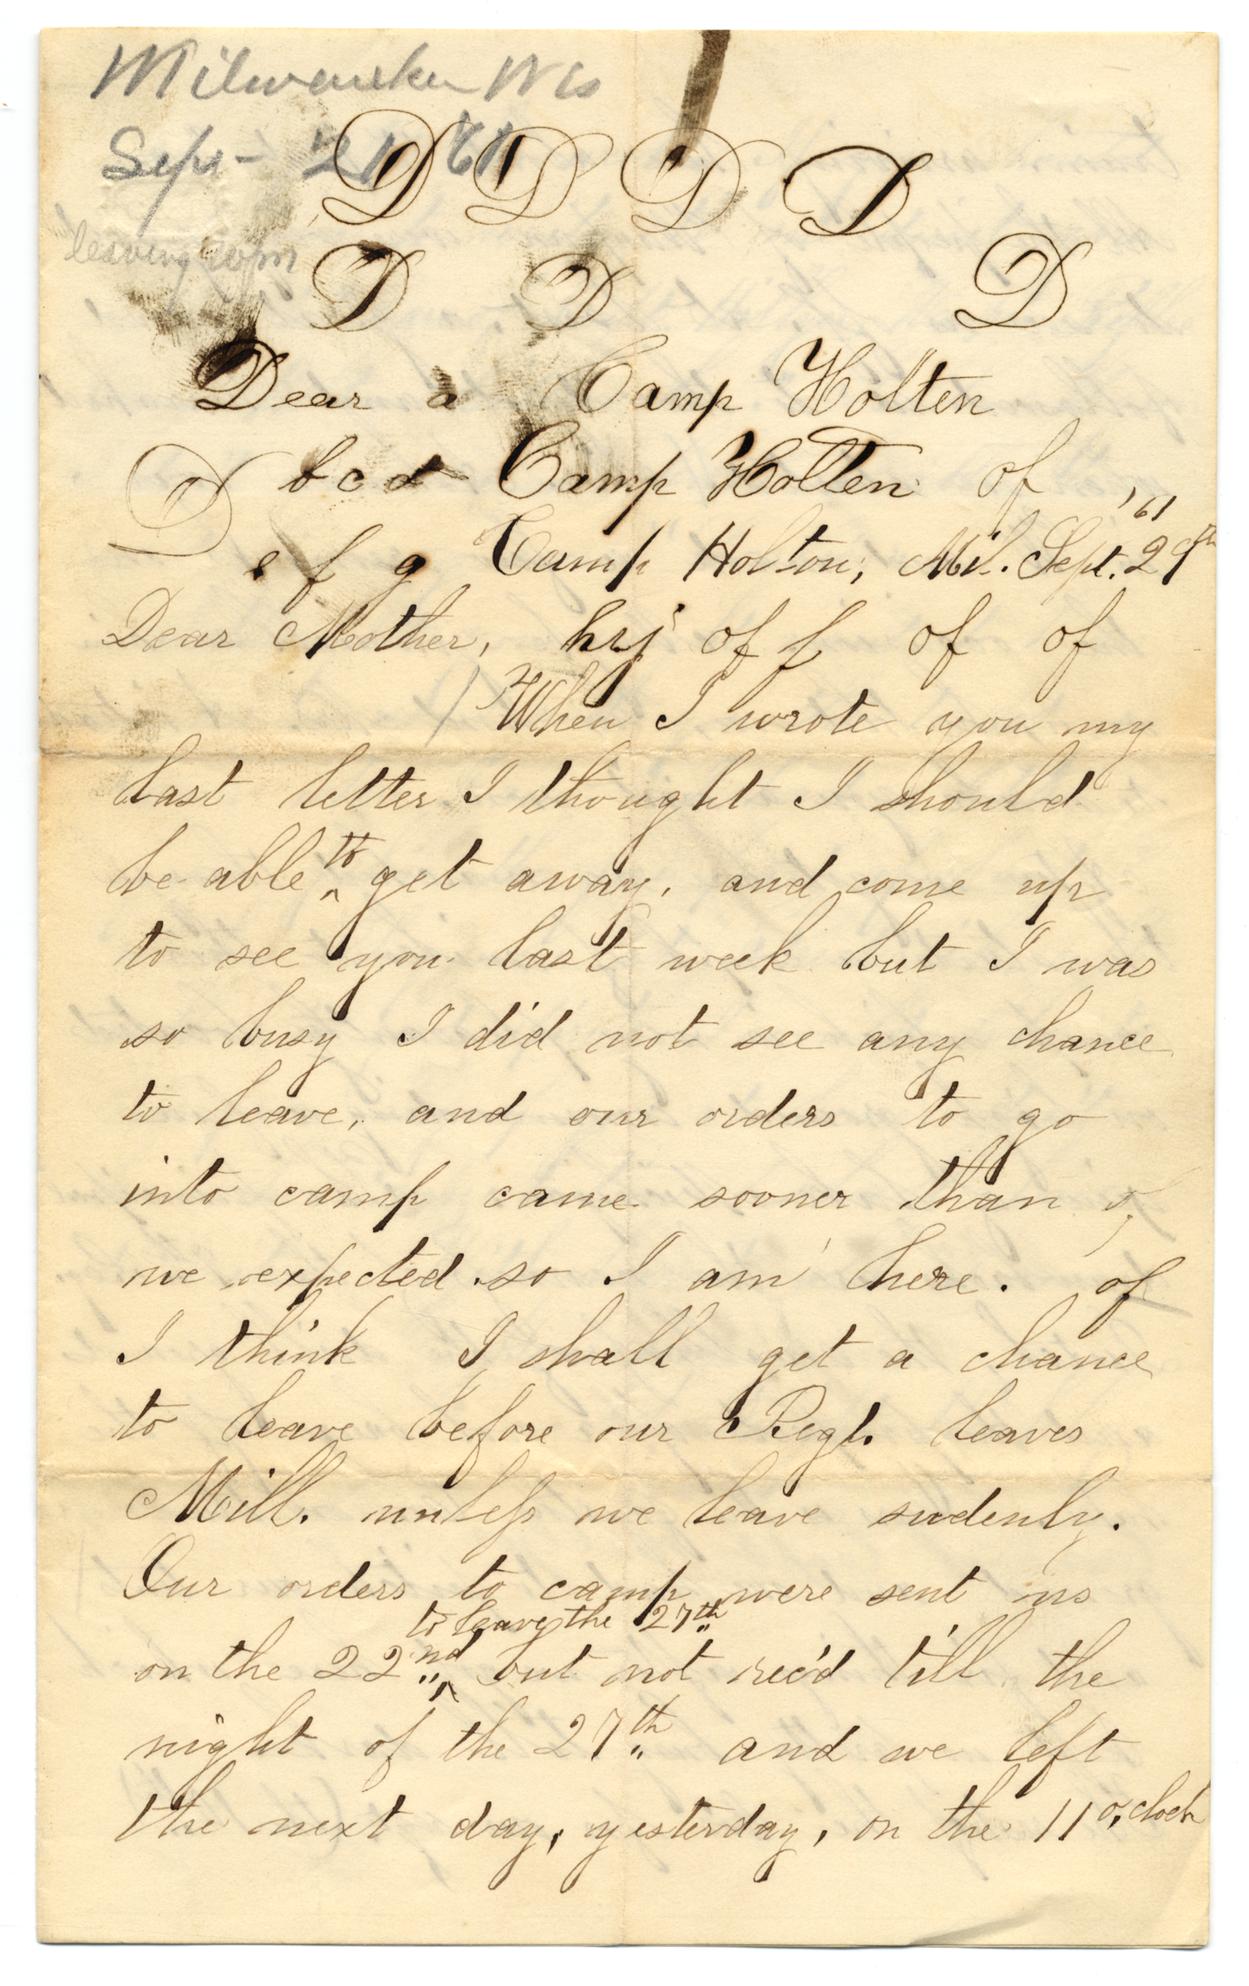 Milwaukee Wis
Sept - 21 61
D D D D
leaving
D D D
Dear a Camp Holten
D b c d Camp Holten of
'61
e f g Camp Holton, Mil. Sept. 29th
Dear Mother, hrj of f of of
When I wrote you my
last letter I thought I should
be able to get away, and come up
to see you last week but I was
so busy I did not see any chance
to leave, and our orders to go
into camp came sooner than o,
we expected so I am here. of
I think I shall get a chance
to leave before our Regt. leaves
Mill. unless we leave sudenly.
Our orders to camp were sent us
to leave the 27th
on the 22nd but not rec'd till the
night of the 27th and we left
the next day, yesterday, on the 11 o,clock